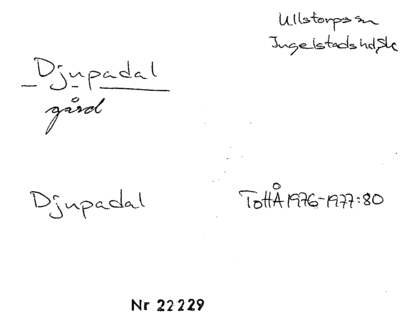 Ullstorps sn
Ingelstads hd, Sk
Djupadal
gård
Djupadal
TottÅ 1976-1977:80
Nr 22229